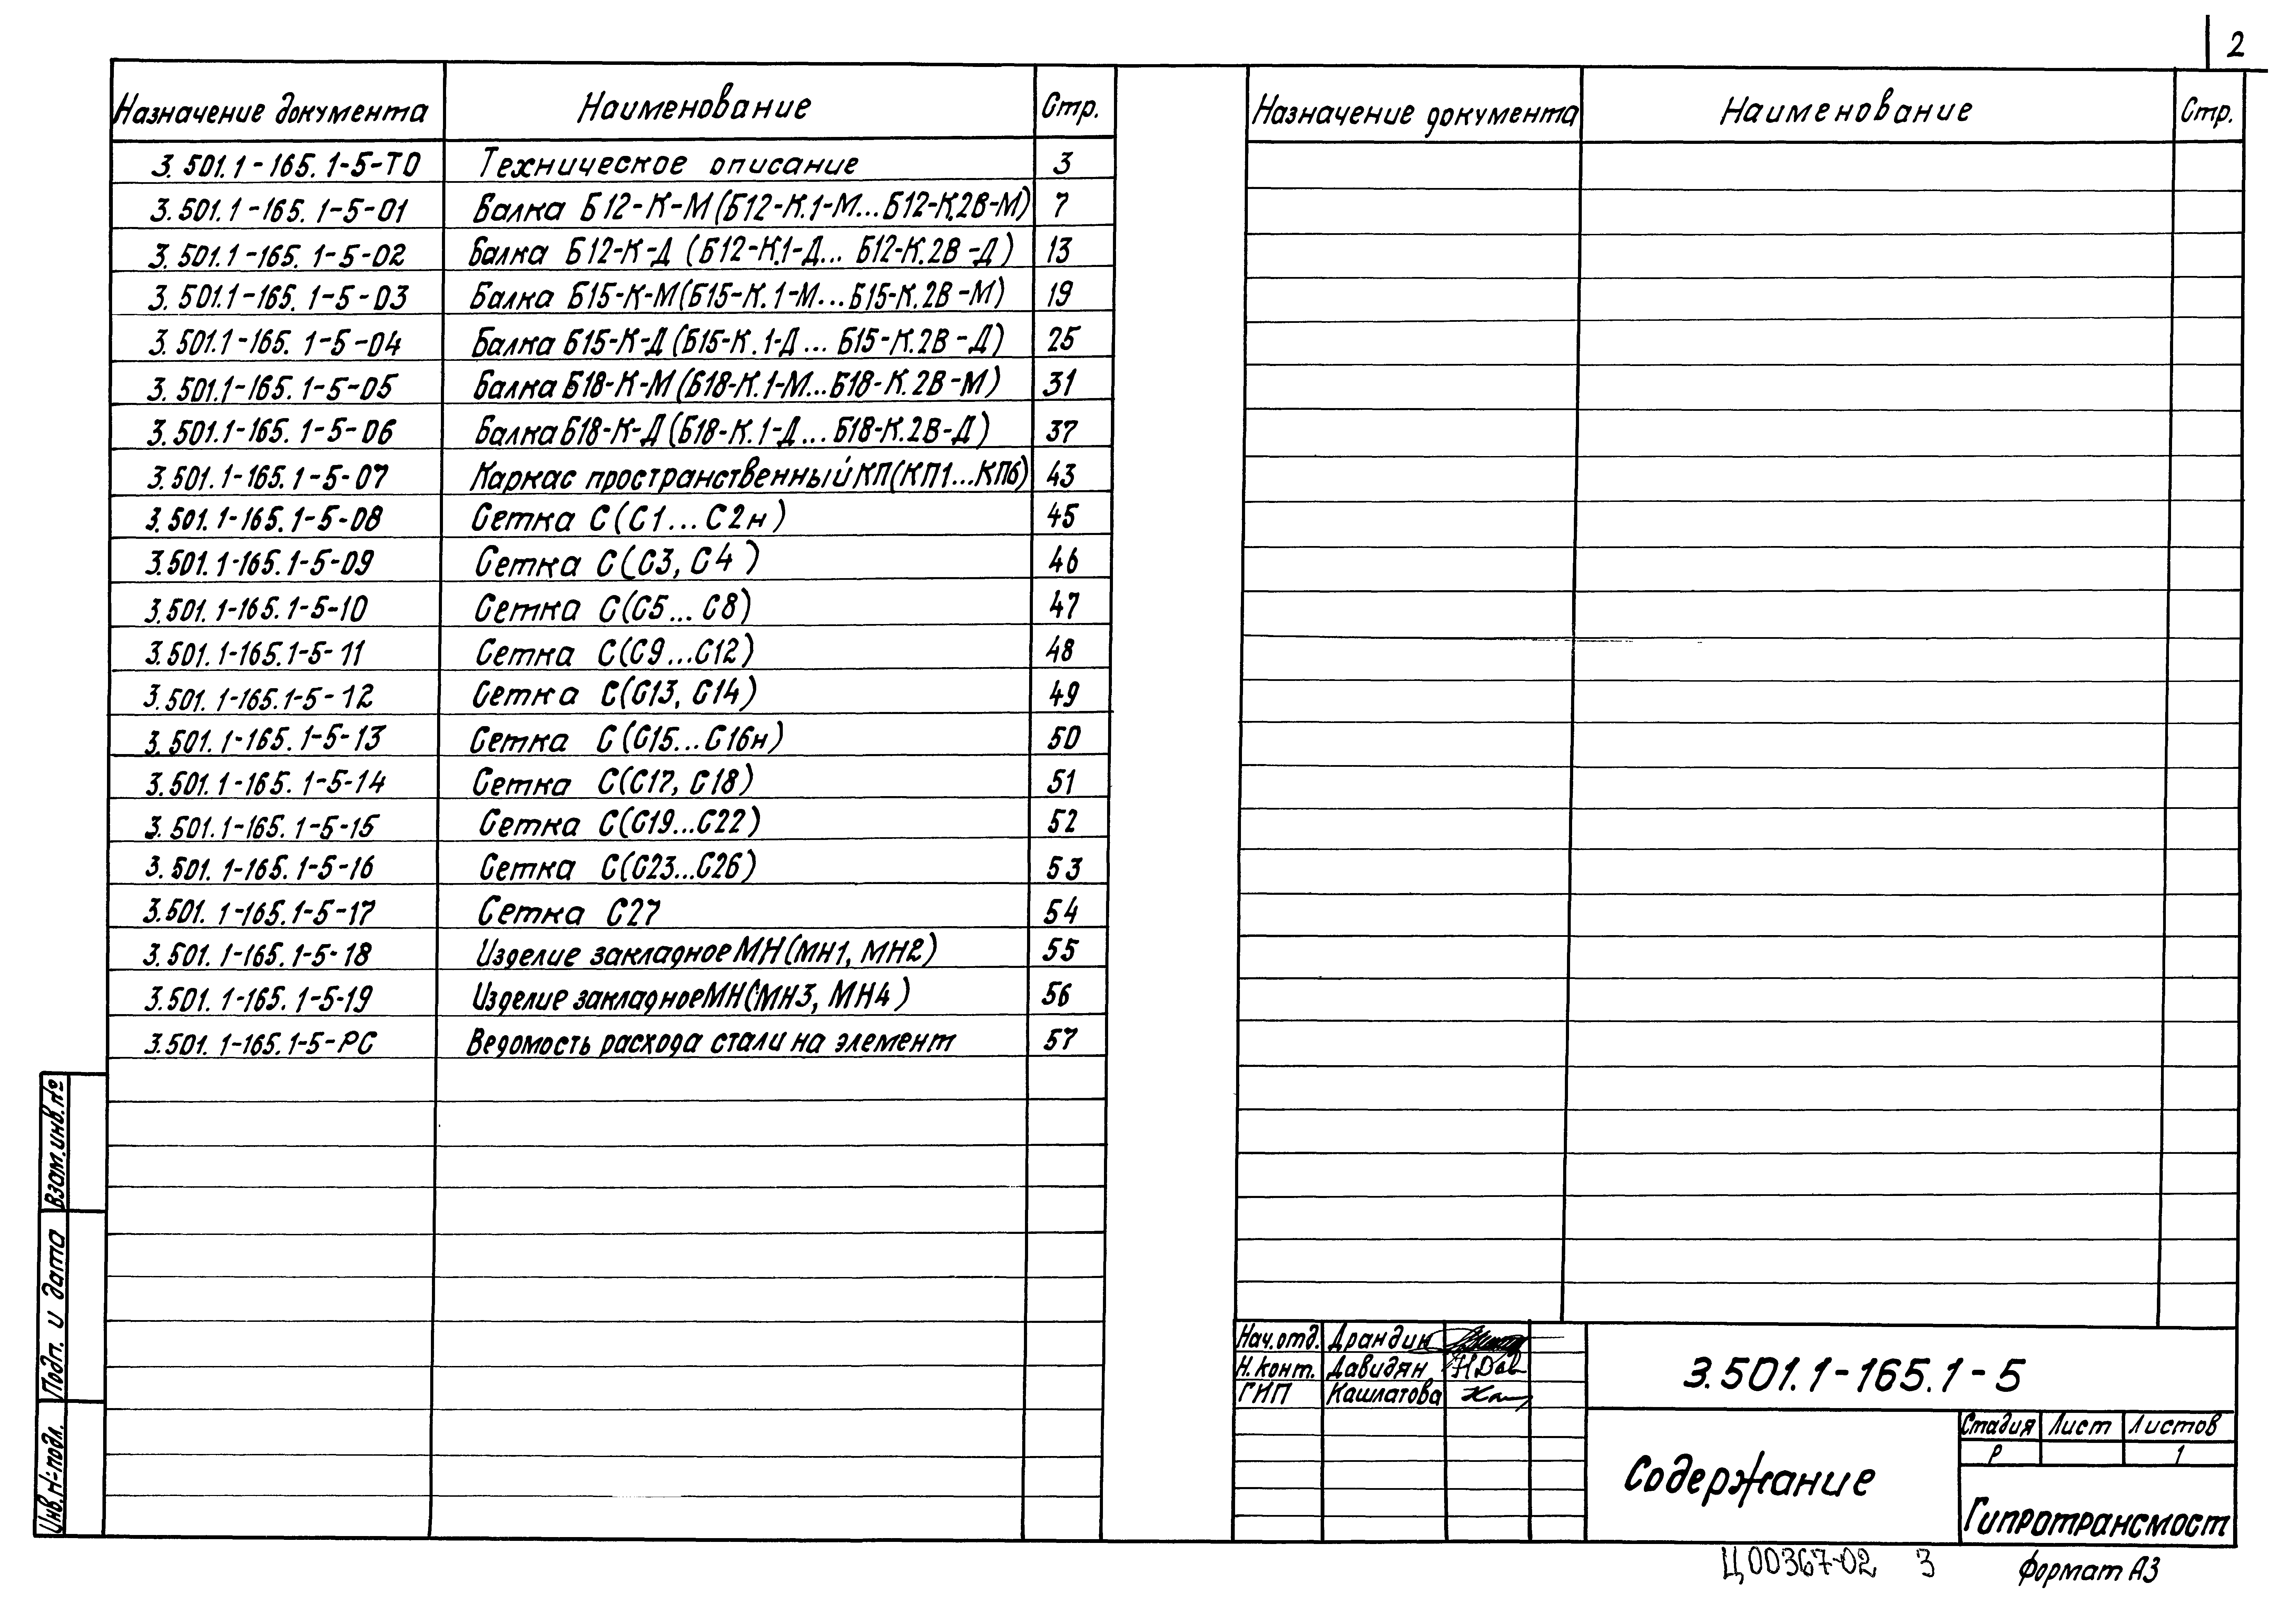 2
Назначение документа Наименование Стр.
3.501.1-165.1-5-ТО Техническое описание 3
3.501.1-165.1-5-01 Балка Б12-К-М(Б12-К.1-М...Б12-К.2В-М) 7
3.501.1-165.1-5-02 Балка Б12-К-Д (Б12-К.1-Д... Б12-К.2В-Д) 13
3.501.1-165.1-5-03 Балка Б15-К-М(Б15-К.1-М...Б15-К.2В-М) 19
3.501.1-165.1-5-04 Балка Б15-К-Д(Б15-К.1-Д...Б15-К.2В-Д) 25
3.501.1-165.1-5-05 Балка Б18-К-М(Б18-К.1-М...Б18-К.2В-М) 31
3.501.1-165.1-5-06 Балка Б18-К-Д(Б18-К.1-Д...Б18-К.2В-Д) 37
3.501.1-165.1-5-07 Каркас пространственный КП(КП1...КП6) 43
3.501.1-165.1-5-08 Сетка С(С1...С2н) 45
3.501.1-165.1-5-09 Сетка С(С3, С4) 46
3.501.1-165.1-5-10 Сетка С(С5...С8) 47
3.501.1-165.1-5-11 Сетка С(С9...С12) 48
3.501.1-165.1-5-12 Сетка С(С13, С14) 49
3.501.1-165.1-5-13 Сетка С(С15...С16н) 50
3.501.1-165.1-5-14 Сетка С(С17, С18) 51
3.501.1-165.1-5-15 Сетка С(С19...С22) 52
3.501.1-165.1-5-16 Сетка С(С23...С26) 53
3.501.1-165.1-5-17 Сетка С27 54
3.501.1-165.1-5-18 Изделие закладное МН(МН1, МН2) 55
3.501.1-165.1-5-19 Изделие закладное МН(МН3, МН4) 56
3.501.1-165.1-5-РС Ведомость расхода стали на элемент 57
Взам.инв.№
Подп. и дата
Инв.№подл.
Назначение документа Наименование Стр.
Нач.отд. Драндин
Н.конт. Давидян
ГИП Кашлатова
3.501.1-165.1-5
Содержание
Стадия Лист Листов
Р 1
Гипротрансмост
Ц00367-02 3
Формат А3